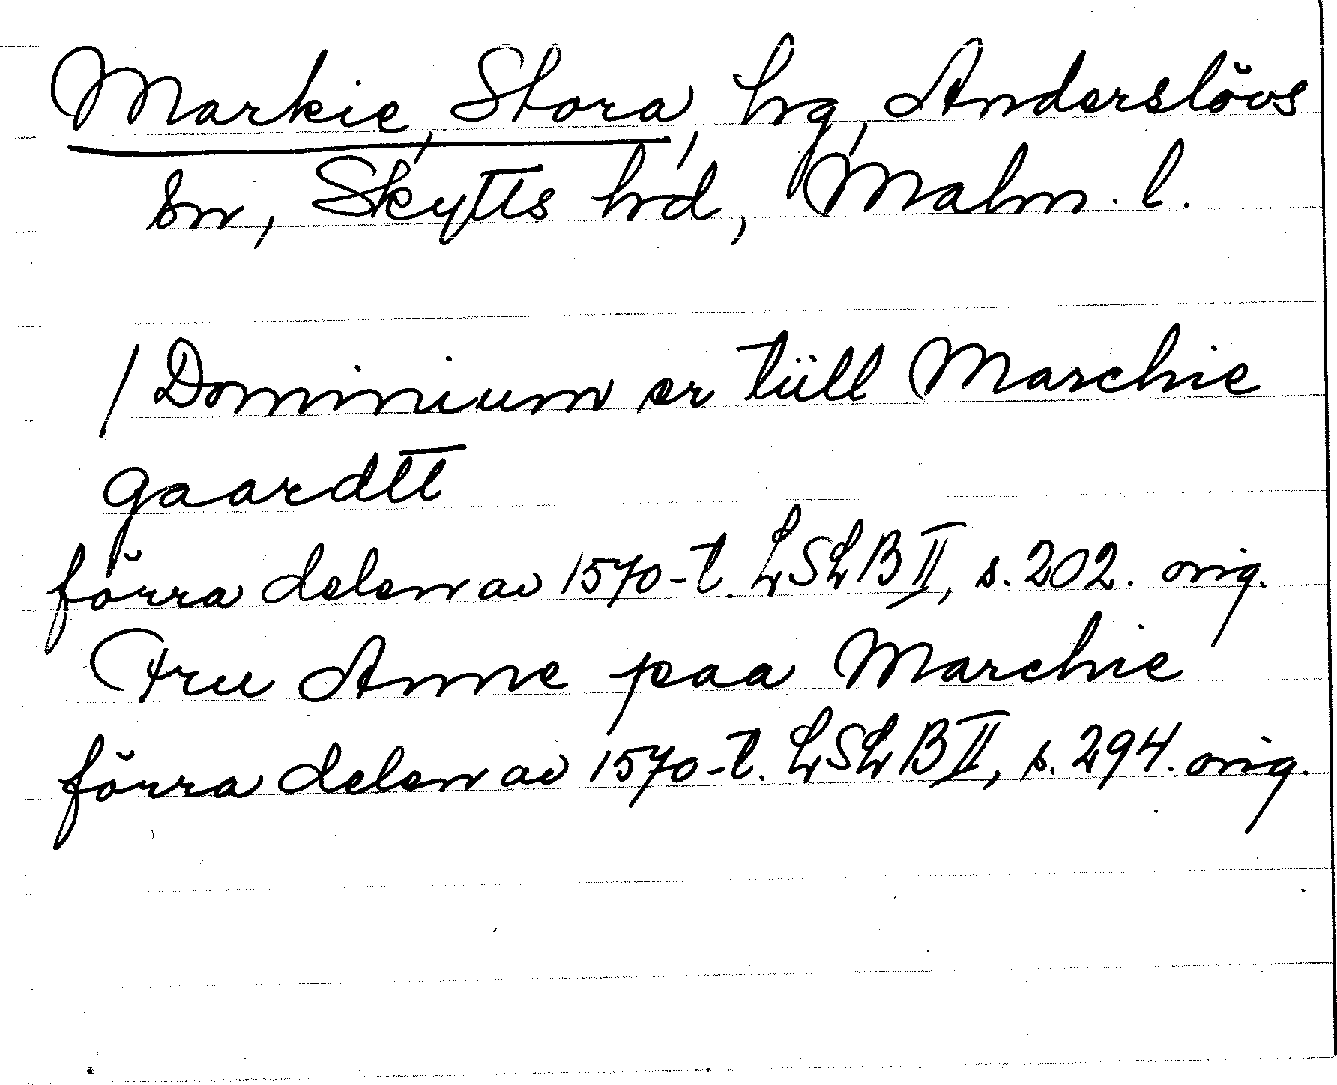 Markie, Stora, hg, Anderslövs
sn, Skytts hd, Malm. l.
/ Dominium er tüll Marchie
gaardtt
förra delen av 1570-t. LSLB II, s. 202. orig.
Fru Anne paa Marchie
förra delen av 1570-t. LSLB II, s. 294. orig.